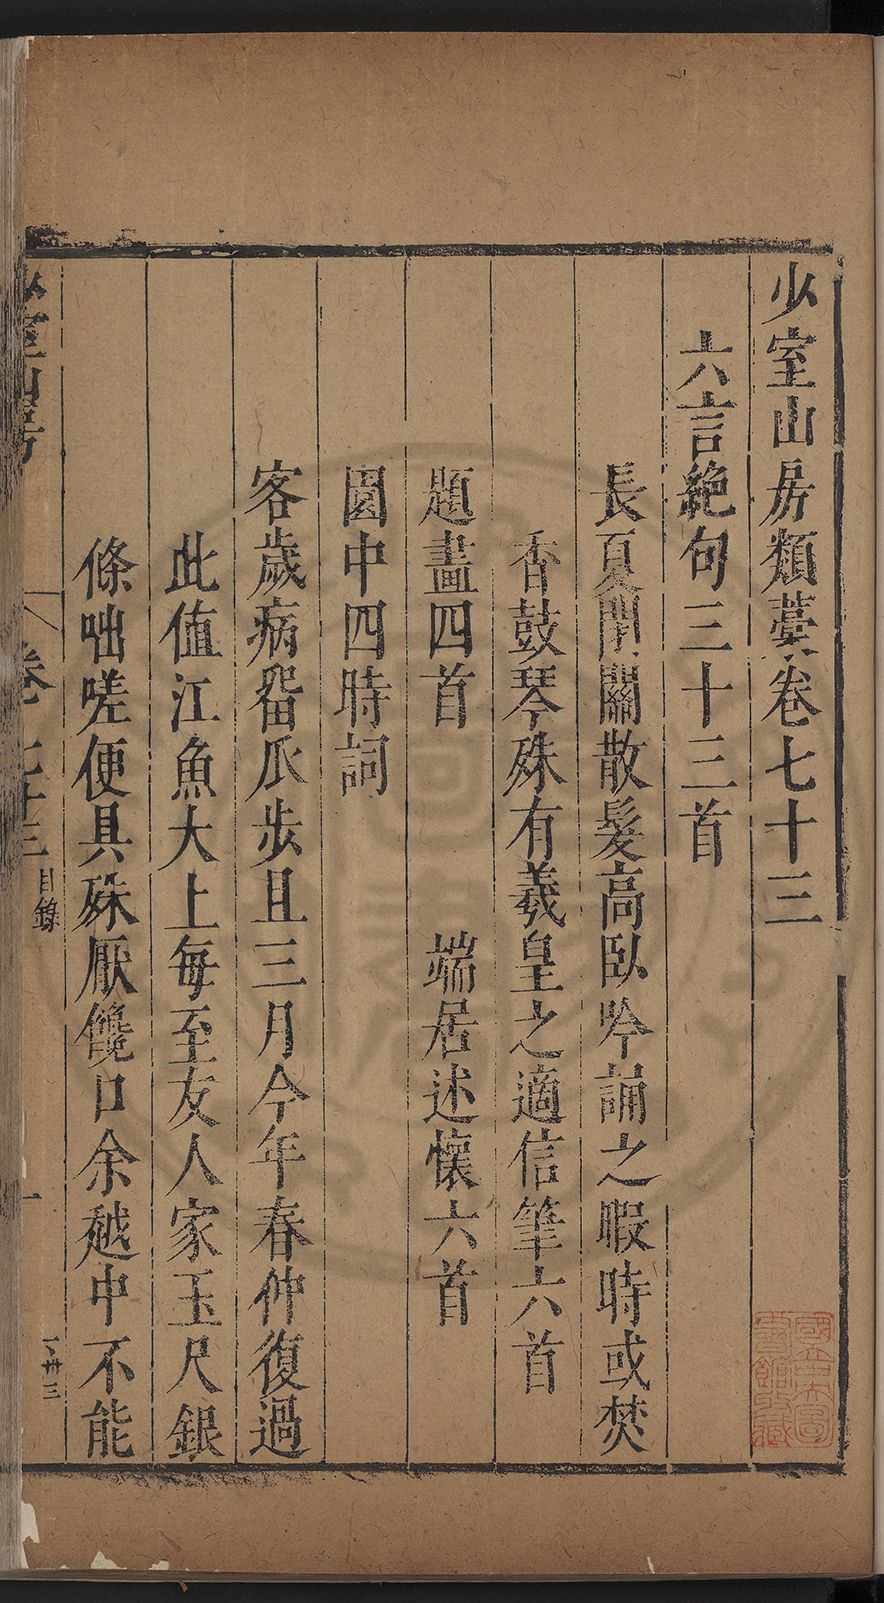 少室山房類藁卷七十三
六言絶句三十三首
長夏閉關散髮高臥吟誦之暇時或焚
香鼓琴殊有羲皇之適信筆六首
題畫四首　端居述懷六首
園中四時詞
客歲病畱瓜步且三月今年春仲復過
此值江魚大上每至友人家玉尺銀
條咄嗟便具殊厭饞口余越中不能
少室山房
卷七十三
目錄
一
卅三
國立中央圖書館收藏